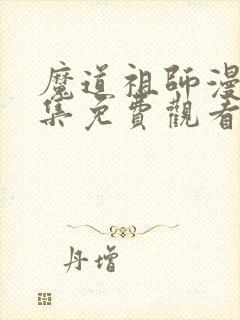 魔道祖師漫
集免費觀看
丹增